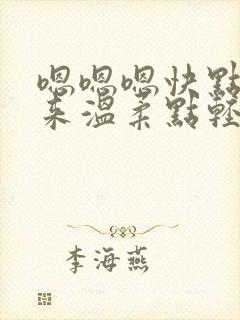 嗯嗯嗯快點
來溫柔點輕
李海燕